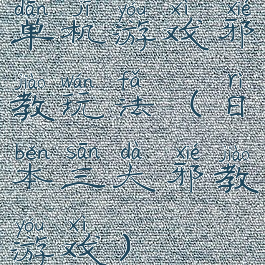 dān jī yóu xì xié
单机游戏邪
jiāo wán fǎ rì
教玩法(日
běn sān dà xié jiāo
本三大邪教
yóu xì
游戏)